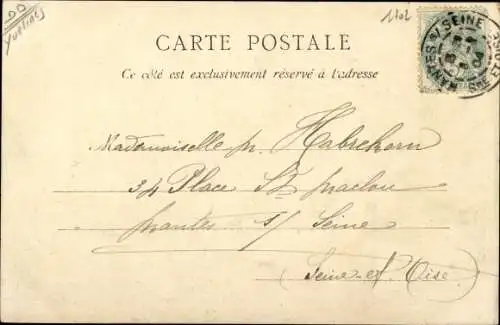 1102
Yvelines
CARTE POSTALE
Ce côté est exclusivement réservé à l'adresse
MANTES S/ SEINE
Mademoiselle pr. Habrekorn
34 Place St maclou
mantes s/ Seine
(Seine-et-Oise)